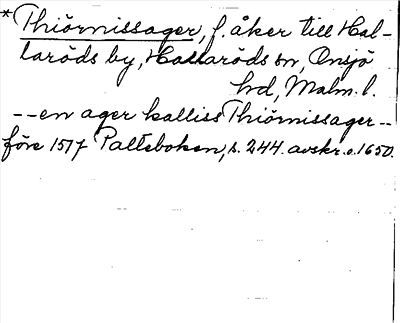 *Thiörnissager, f. åker till Hal-
laröds by, Hallaröds sn, Onsjö
hd, Malm. l.
-- en ager kalliss Thiörnissager --
före 1517 Palteboken, s. 244. avskr. o. 1650.